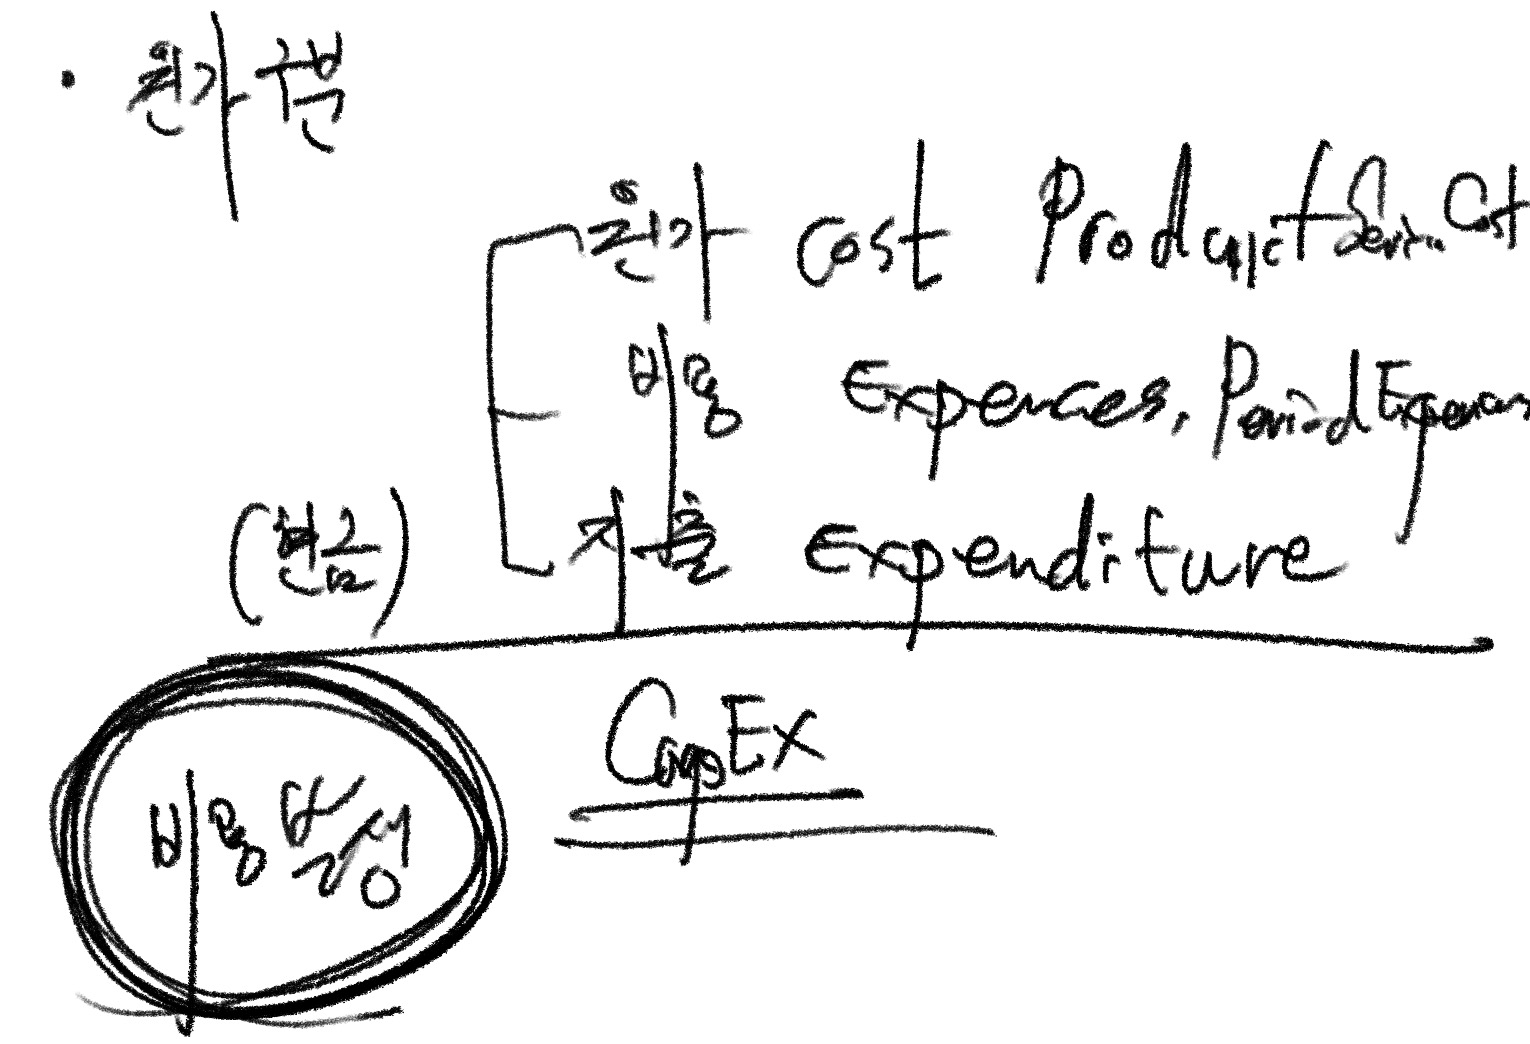 · 원가 구분
원가 Cost Product Servi. Cost
비용 Expences, Period Expences
(현금) 지출 Expenditure
CapEx
비용 발생